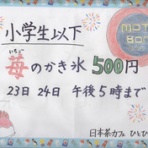 小学生以下
いちご
苺のかき氷 500円
23日 24日 午後5時まで
日本茶カフェ ひとひ